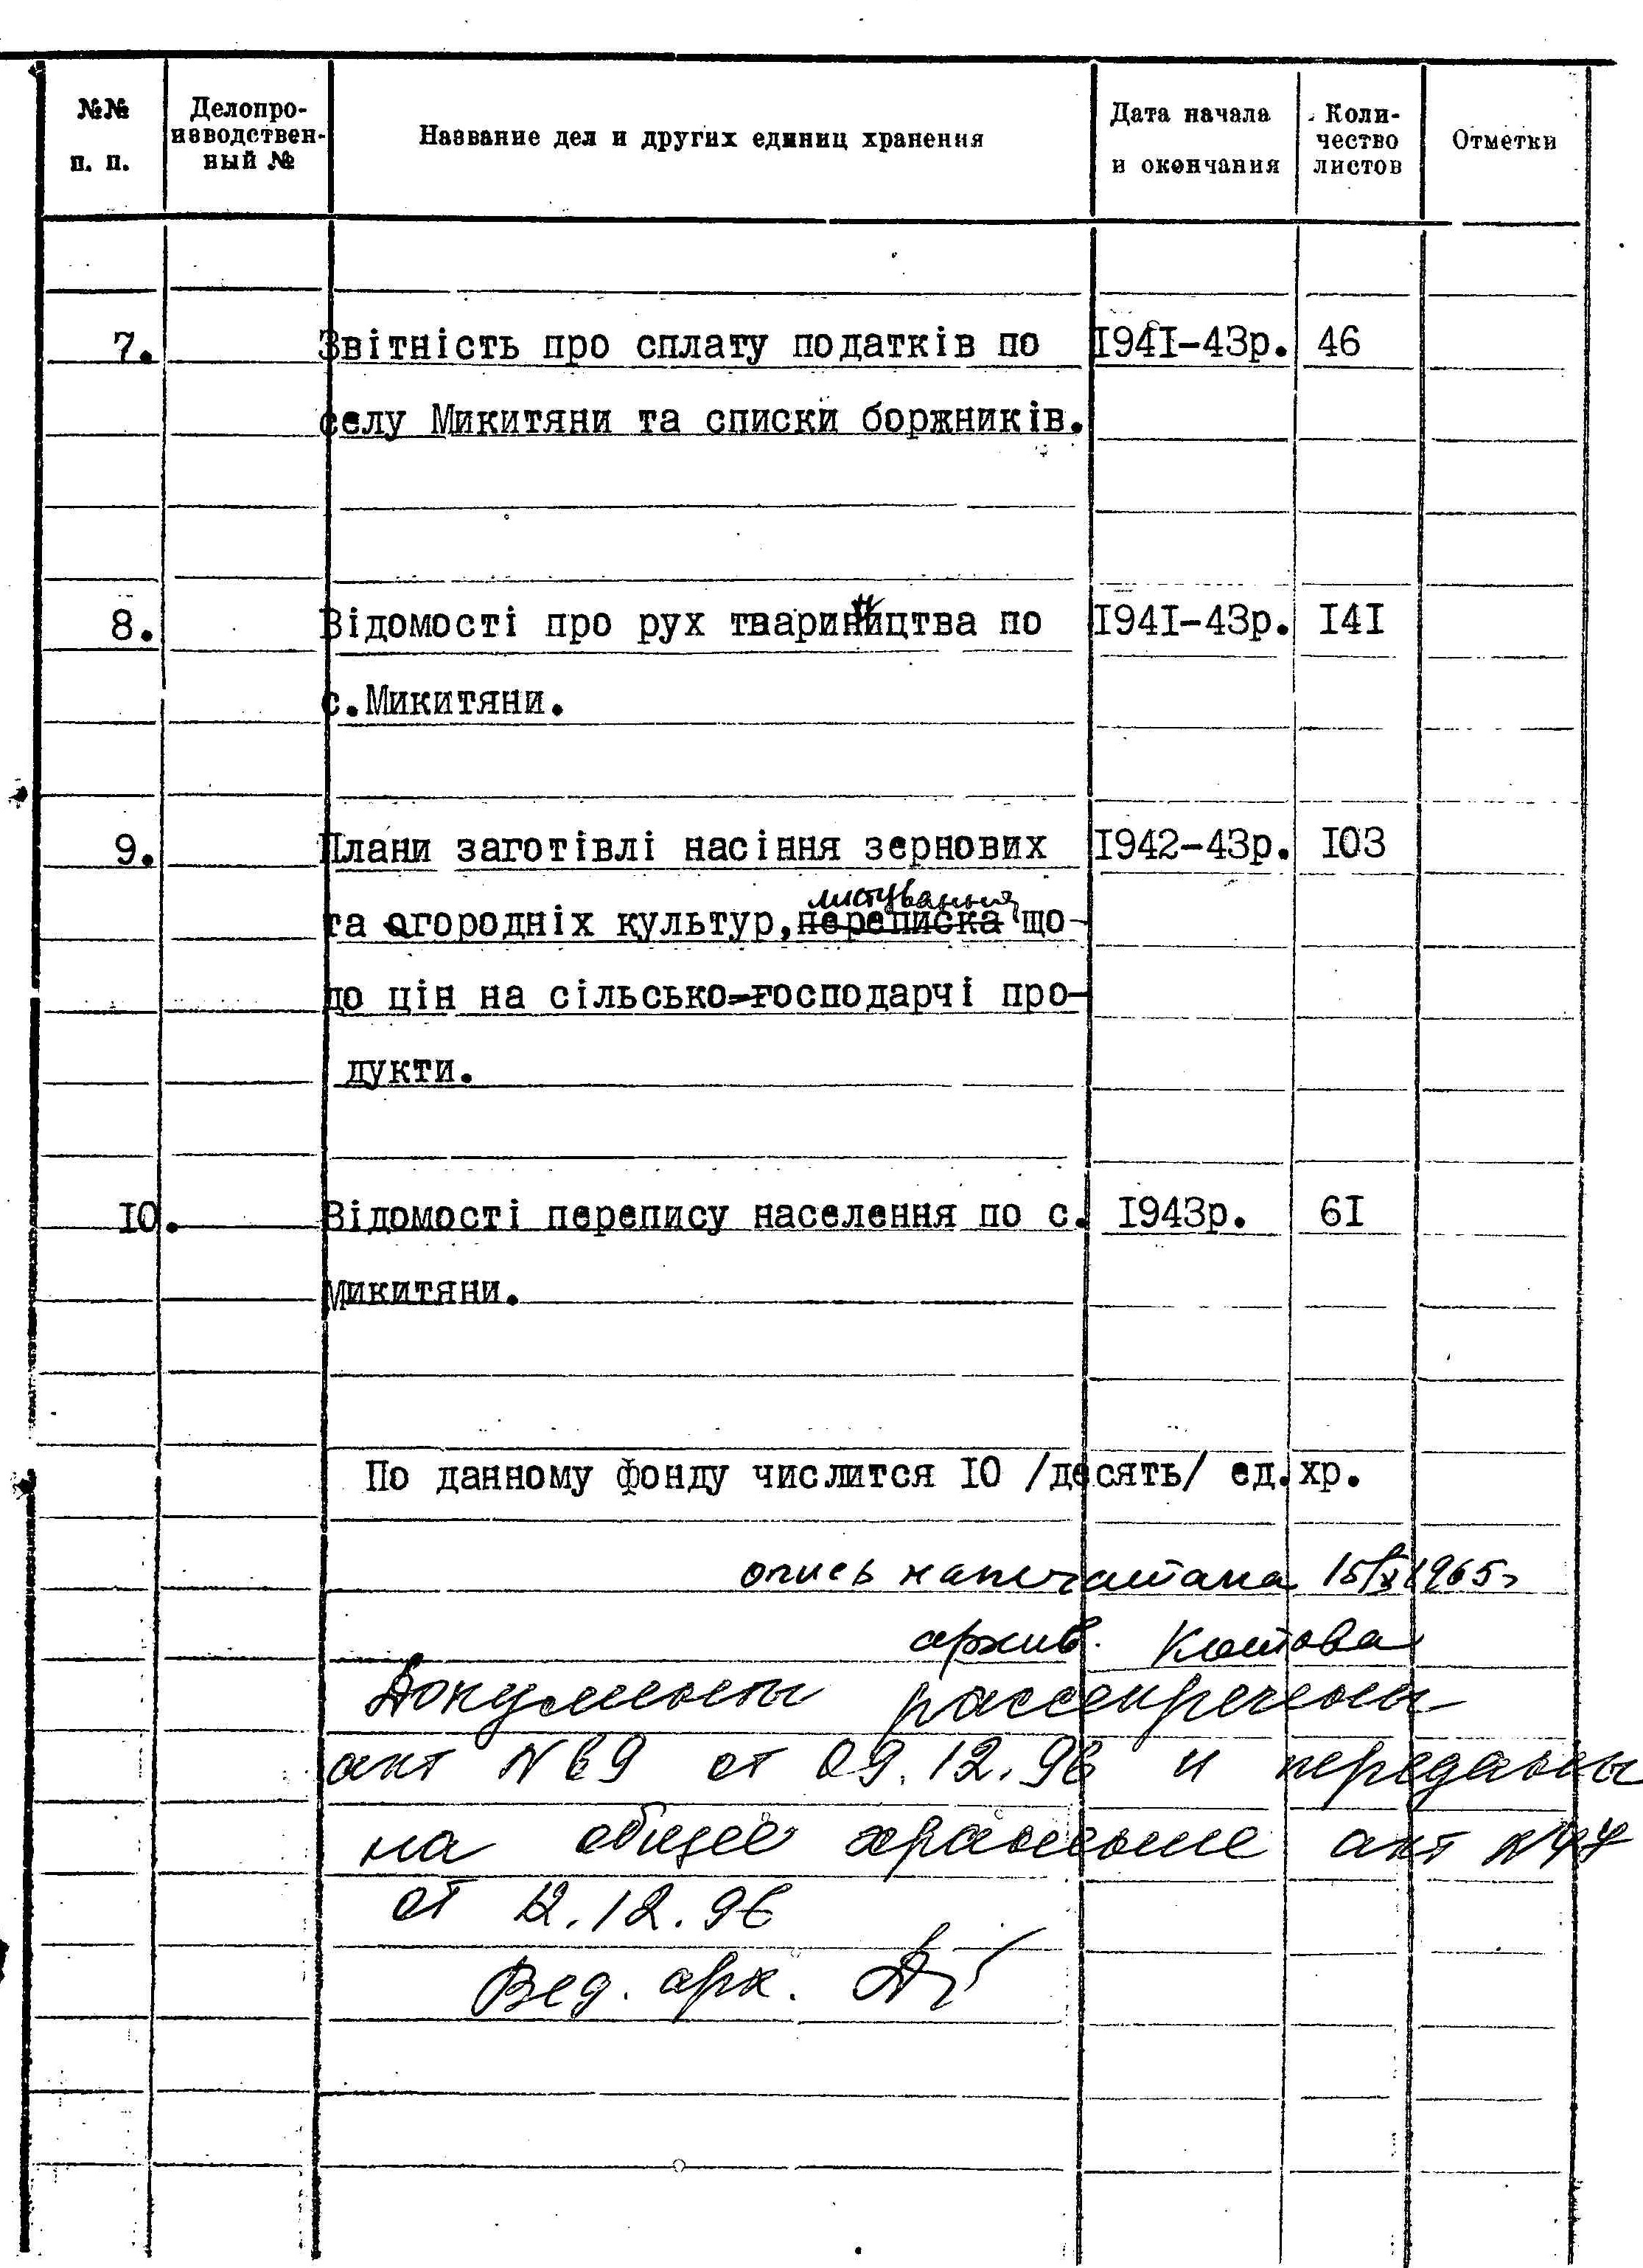 №№ п. п.
Делопро-
изводствен-
ный №
Название дел и других единиц хранения
Дата начала
и окончания
Коли-
чество
листов
Отметки
7. Звітність про сплату податків по 1941-43р. 46
селу Микитяни та списки боржників.
8. Відомості про рух тваринництва по 1941-43р. 141
с.Микитяни.
9. Плани заготівлі насіння зернових 1942-43р. 103
листування
та огородніх культур, переписка що-
до цін на сільсько-господарчі про-
дукти.
10. Відомості перепису населення по с. 1943р. 61
Микитяни.
По данному фонду числится 10 /десять/ ед.хр.
опись напечатана 15/X 1965г
архив. Котова
Документы рассекречены
акт № 9 от 09.12.96 и переданы
на общее хранение акт №
от 12.12.96
Вед. арх.